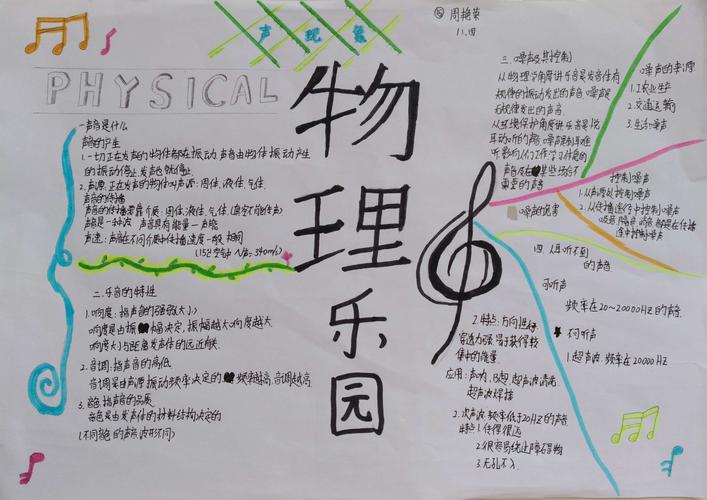 声现象
⑮ 周艳荣
11.四
PHYSICAL
物理乐园
一声音是什么
声音的产生
1.一切正在发声的物体都在振动,声音由物体振动产生
的振动停止,发声就停止
2.声源:正在发声的物体叫声源:固体,液体,气体
声音的传播
声音的传播需靠介质:固体,液体,气体,(真空不能传声)
声音是一种波 声音具有能量—声能
声速:声音在不同介质中传播速度一般 相同
(15℃空气中 340m/s)
二.乐音的特性
1.响度:指声音的强弱(大小)
响度是由振幅决定,振幅越大响度越大
响度大小与距离发声体的远近有关
2.音调:指声音的高低
音调是由声源振动频率决定的 频率越高,音调越高
3.音色:指声音的品质
音色是由发声体的材料结构决定的
(不同音色的声音,波形不同)
三.噪声及其控制
从物理学角度讲乐音是发音体有
规律的振动发出的声音,噪声是
无规律发出的声音
从环境保护角度讲乐音是悦
耳动听的声音,噪声则是难
听影响人们工作学习休息的
声音及在某些场合不
需要的声音
噪声的来源
1.工农业生产
2.交通运输
3.生活噪声
噪声的危害
控制噪声
1.从声源处控制噪声
2.从传播途径中控制噪声
吸音,隔音,消音,都是在传播
途中控制噪声
四.人听不到
的声音
可听声
频率在20~20000HZ的声音
不可听声
1.超声波:频率在20000HZ
2.特点:方向性好
穿透力强 易于获得较
集中的能量
应用:声呐,B超,超声波清洗
超声波焊接
2.次声波:频率低于20HZ的声音
特点1.传得很远
2.很容易绕过障碍物
3.无孔不入